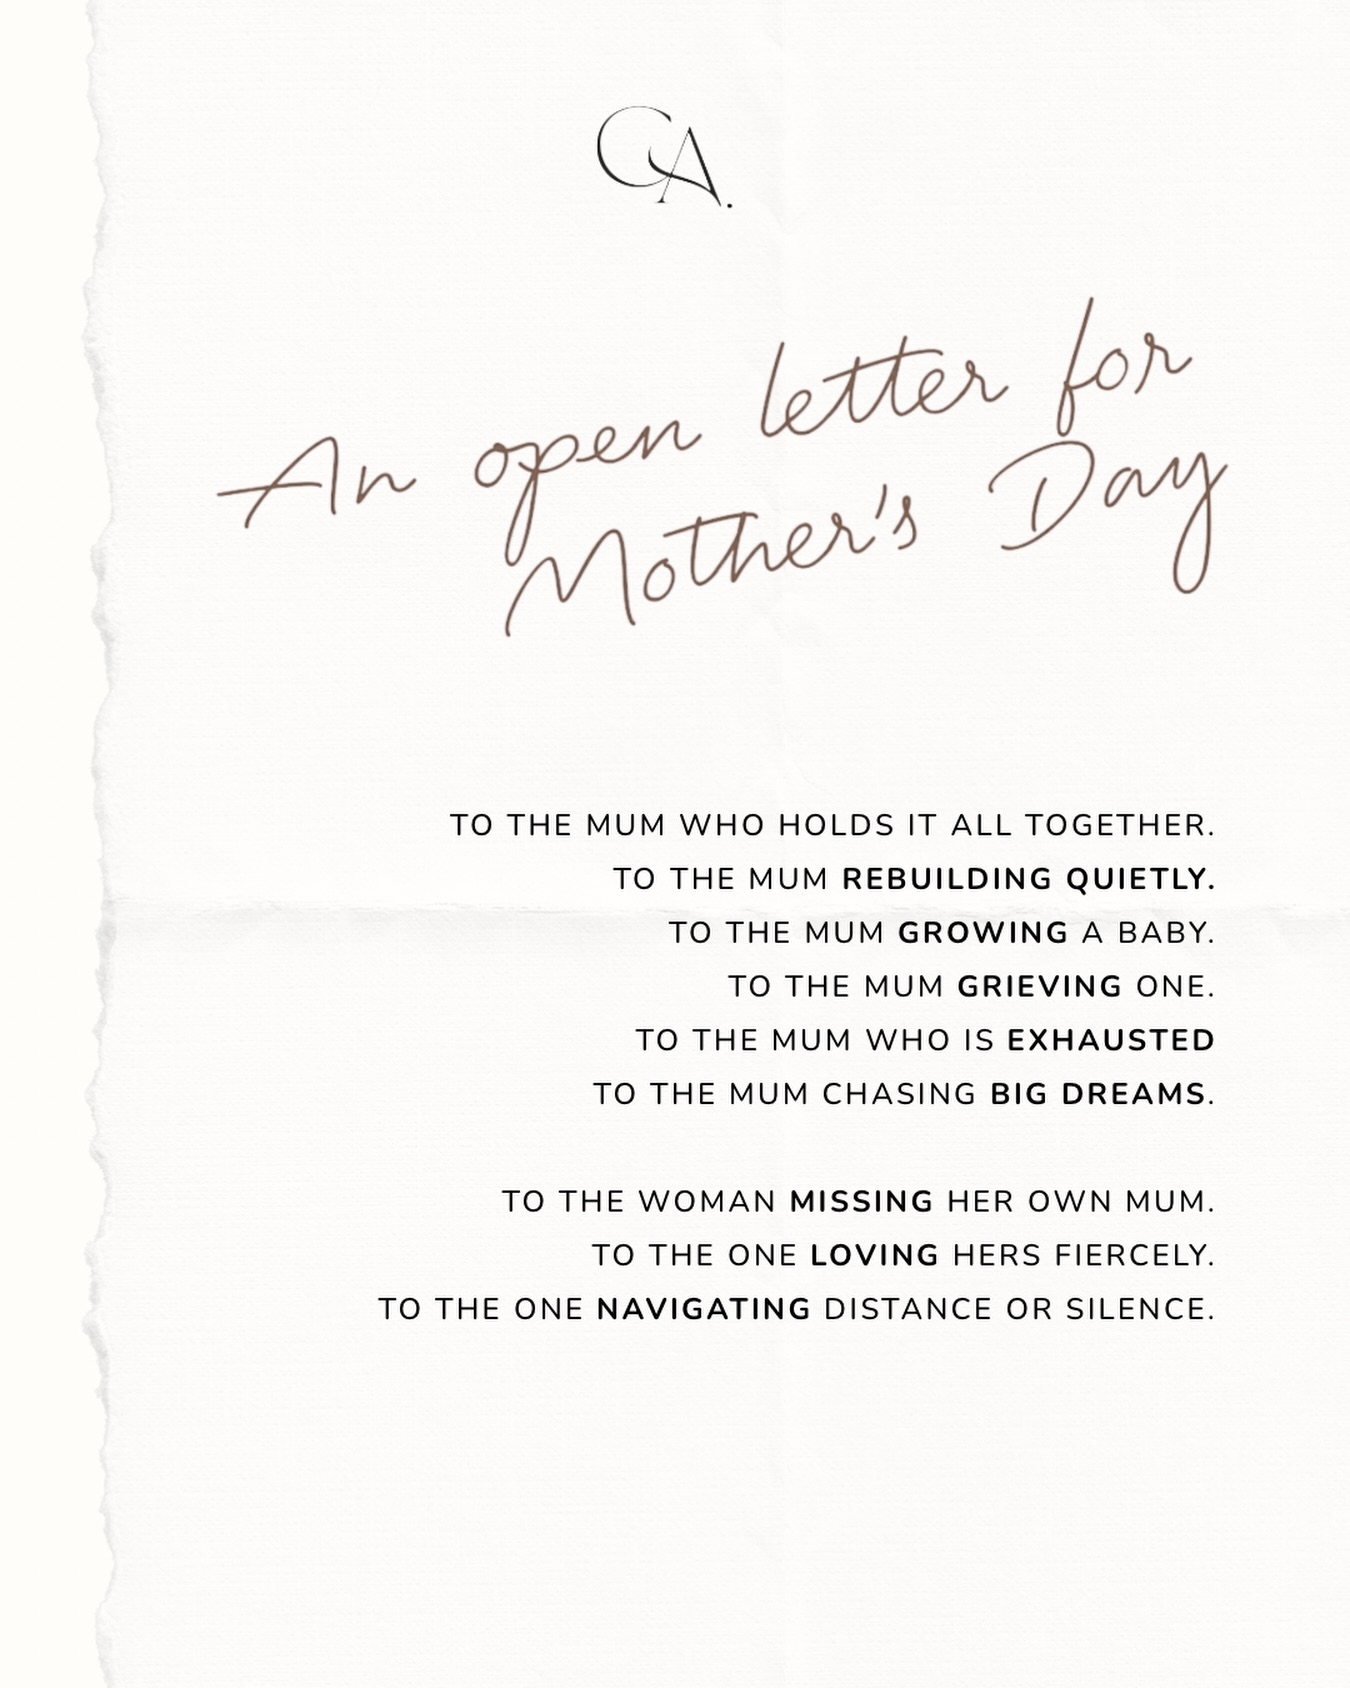 CA.
An open letter for
Mother's Day
TO THE MUM WHO HOLDS IT ALL TOGETHER.
TO THE MUM REBUILDING QUIETLY.
TO THE MUM GROWING A BABY.
TO THE MUM GRIEVING ONE.
TO THE MUM WHO IS EXHAUSTED
TO THE MUM CHASING BIG DREAMS.
TO THE WOMAN MISSING HER OWN MUM.
TO THE ONE LOVING HERS FIERCELY.
TO THE ONE NAVIGATING DISTANCE OR SILENCE.